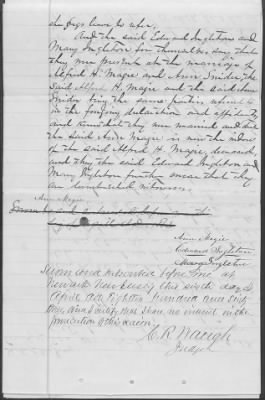 she begs leave to refer.
And the said Edward Ingleton and
Mary Ingleton for themselves say that
they were present at the marriage of
Alfred H. Magie and Ann Snider, the
said Alfred H. Magie and the said Ann
Snider being the same parties
in the foregoing declaration and affidavity
and
the said Ann Magie is now the widow
of the said Alfred H. Magie, deceased,
and they the said Edward Ingleton and
Mary Ingleton further swear that they
are
Ann Magie
Ann Magie
Edward Ingleton
Mary Ingleton
Sworn and subscribed before me at
Newark New Jersey this sixth day of
April AD, Eighteen hundred and sixty
three, and I certify that I have no interest in the
prosecution of this claim.
C. R. Waugh
Judge